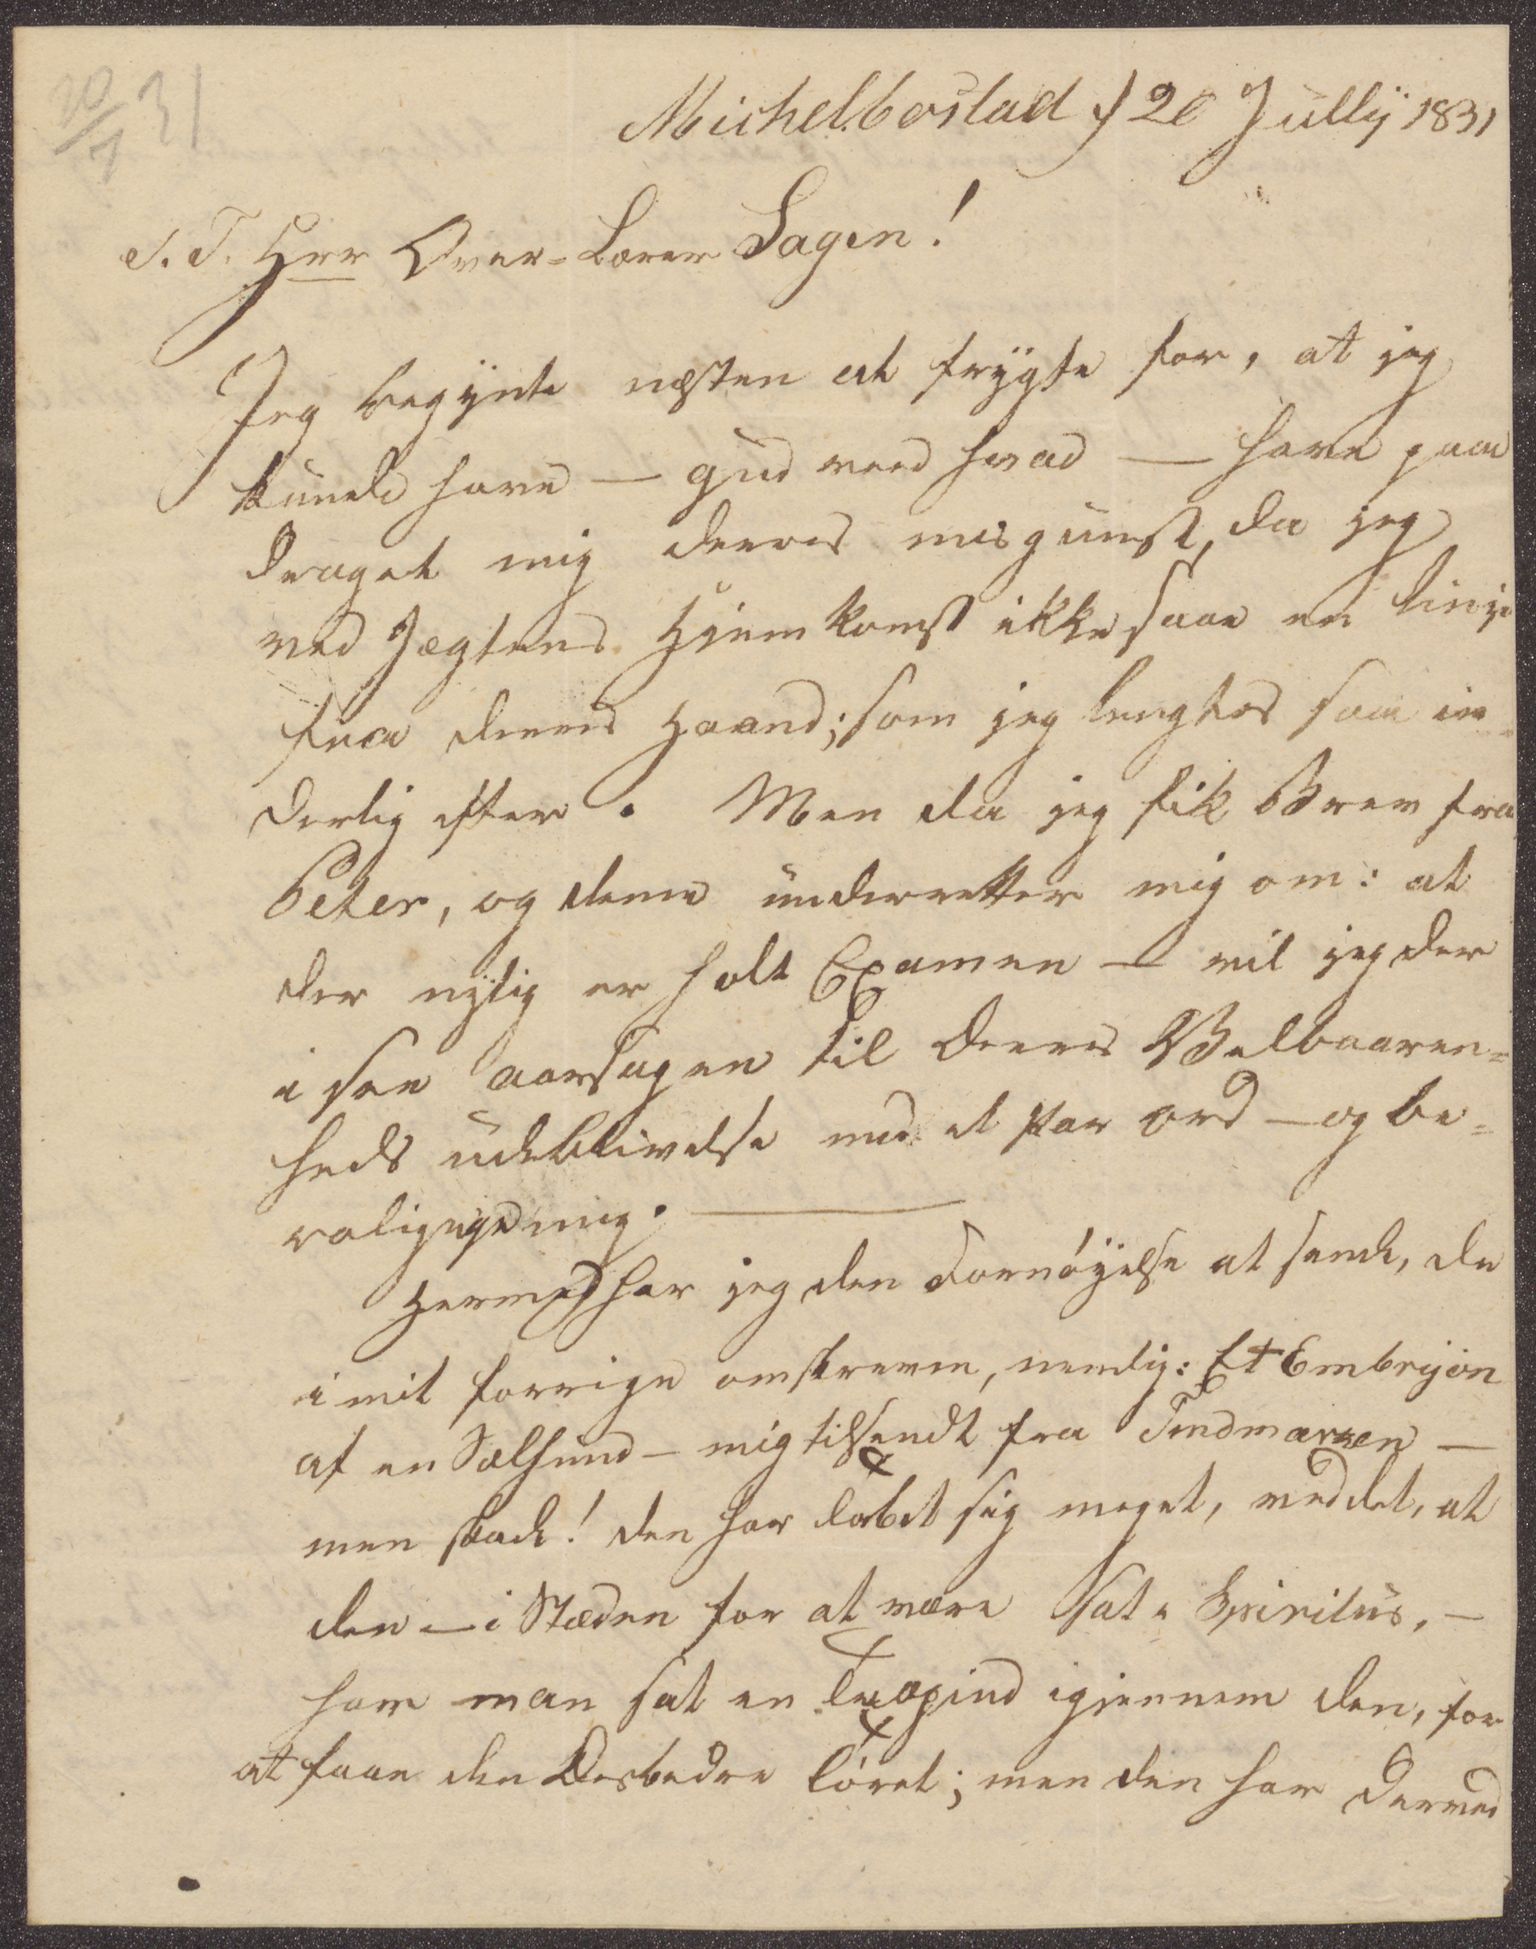 20/7 31
Michelbostad d 20 Jully 1831
S. T. Hrr Over-Lærer Sagen!
Jeg begynte næsten at frygte for, at jeg
kunde have — gud veed hvad — have paa
draget mig deeres misgunst, da jeg
ved Jægtens Hjemkomst ikke saae en linje
fra deeres Haand; som jeg længtes saa in-
derlig efter. Men da jeg fik Brev fra
Peter, og denne underretter mig om: at
der nylig er holt Examen — vil jeg der
i see aarsagen til Deeres Velbaaren-
heds udeblivelse med et par ord — og be-
rolige mig. —
Hermed har jeg den Fornöyelse at sende, de
i mit forrige omskrevne, nemlig: Et Embryon
af en Sælhund — mig tilsendt fra Findmarken —
men skade! den har tabet sig meget, ved det, at
den — i Stæden for at være sat i Spiritus, —
har man sat en Træpind igjennem den, for
at faae den Desbedre töret; men den har derved